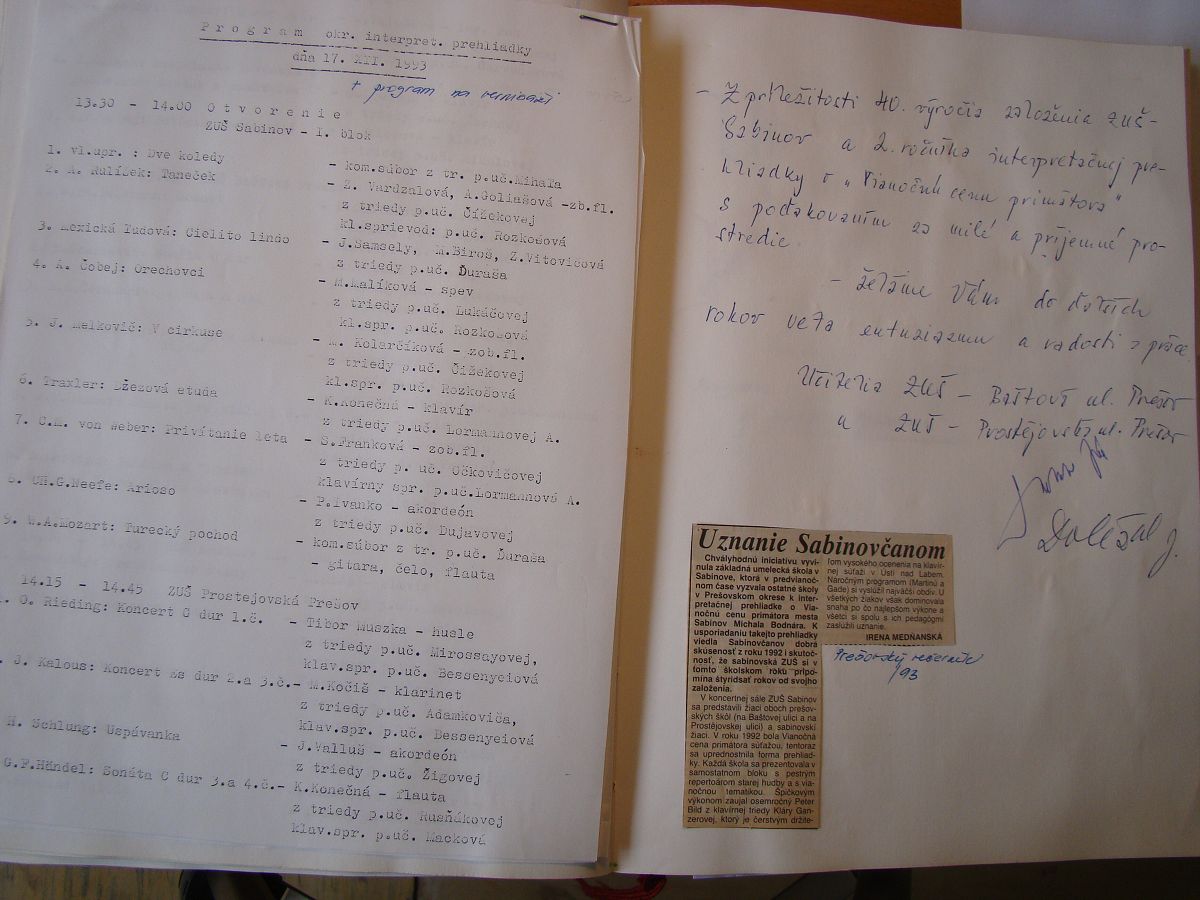 Program okr. interpret. prehliadky
dňa 17. XII. 1993
+ program na vernisáži
13.30 - 14.00 Otvorenie
ZUŠ Sabinov - I. blok
1. vl.upr. : Dve koledy - kom.súbor z tr. p.uč.Mihaľa
2. A. Kulíšek: Taneček - Z. Vardzalová, A.Goliašová -zb.fl.
z triedy p.uč. Čížekovej
kl.sprievod: p.uč. Rozkošová
3. Mexická ľudová: Cielito lindo - J.Samsely, M.Biroš, Z.Vitovičová
z triedy p.uč. Ďuraša
4. A. Čobej: Orechovci - M.Malíková - spev
z triedy p.uč. Lukáčovej
kl.spr. p.uč. Rozkošová
5. J. Melkovič: V cirkuse - M. Kolarčíková - zob.fl.
z triedy p.uč. Čížekovej
kl.spr. p.uč. Rozkošová
6. Traxler: Džezová etuda - K.Konečná - klavír
z triedy p.uč. Lormannovej A.
7. C.M. von Weber: Privítanie leta - S.Franková - zob.fl.
z triedy p. uč. Očkovičovej
klavírny spr. p.uč.Lormannová A.
8. Ch.G.Neefe: Arioso - P.Ivanko - akordeón
z triedy p.uč. Dujavovej
9. W.A.Mozart: Turecký pochod - kom.súbor z tr. p.uč. Ďuraša
- gitara, čelo, flauta
14.15 - 14.45 ZUŠ Prostejovská Prešov
. O. Rieding: Koncert G dur 1.č. - Tibor Muszka - husle
z triedy p.uč. Mirossayovej,
klav.spr. p.uč. Bessenyeiová
. J. Kalous: Koncert Es dur 2.a 3.č.- M.Kočiš - klarinet
z triedy p.uč. Adamkoviča,
klav.spr. p.uč. Bessenyeiová
H. Schlung: Uspávanka - J.Valluš - akordeón
z triedy p.uč. Žigovej
G.F.Händel: Sonáta C dur 3.a 4.č.- K.Konečná - flauta
z triedy p.uč. Rusňákovej
klav.spr. p.uč. Macková
- Z príležitosti 40. výročia založenia ZUŠ-
Sabinov a 2. ročníka interpretačnej pre-
hliadky o „Vianočnú cenu primátora"
s poďakovaním za milé a príjemné pro-
stredie
- želáme Vám do ďalších
rokov veľa entuziazmu a radosti z práce.
Učitelia ZUŠ - Baštová ul. Prešov
a ZUŠ - Prostějovská ul. Prešov
Doležal J.
Uznanie Sabinovčanom
Chvályhodnú iniciatívu vyvi-
nula základná umelecká škola v
Sabinove, ktorá v predvianoč-
nom čase vyzvala ostatné školy
v Prešovskom okrese k inter-
pretačnej prehliadke o Via-
nočnú cenu primátora mesta
Sabinov Michala Bodnára. K
usporiadaniu takejto prehliadky
viedla Sabinovčanov dobrá
skúsenosť z roku 1992 i skutoč-
nosť, že sabinovská ZUŠ si v
tomto školskom roku pripo-
mína štyridsať rokov od svojho
založenia.
V koncertnej sále ZUŠ Sabinov
sa predstavili žiaci oboch prešov-
ských škôl (na Baštovej ulici a na
Prostějovskej ulici) a sabinovskí
žiaci. V roku 1992 bola Vianočná
cena primátora súťažou, tentoraz
sa uprednostnila forma prehliad-
ky. Každá škola sa prezentovala v
samostatnom bloku s pestrým
repertoárom starej hudby a s via-
nočnou tematikou. Špičkovým
výkonom zaujal osemročný Peter
Bild z klavírnej triedy Kláry Gan-
zerovej, ktorý je čerstvým držite-
ľom vysokého ocenenia na klavír-
nej súťaži v Ústí nad Labem.
Náročným programom (Martinů a
Gade) si vyslúžil najväčší obdiv. U
všetkých žiakov však dominovala
snaha po čo najlepšom výkone a
všetci si spolu s ich pedagógmi
zaslúžili uznanie.
IRENA MEDŇANSKÁ
Prešovský večerník
/93